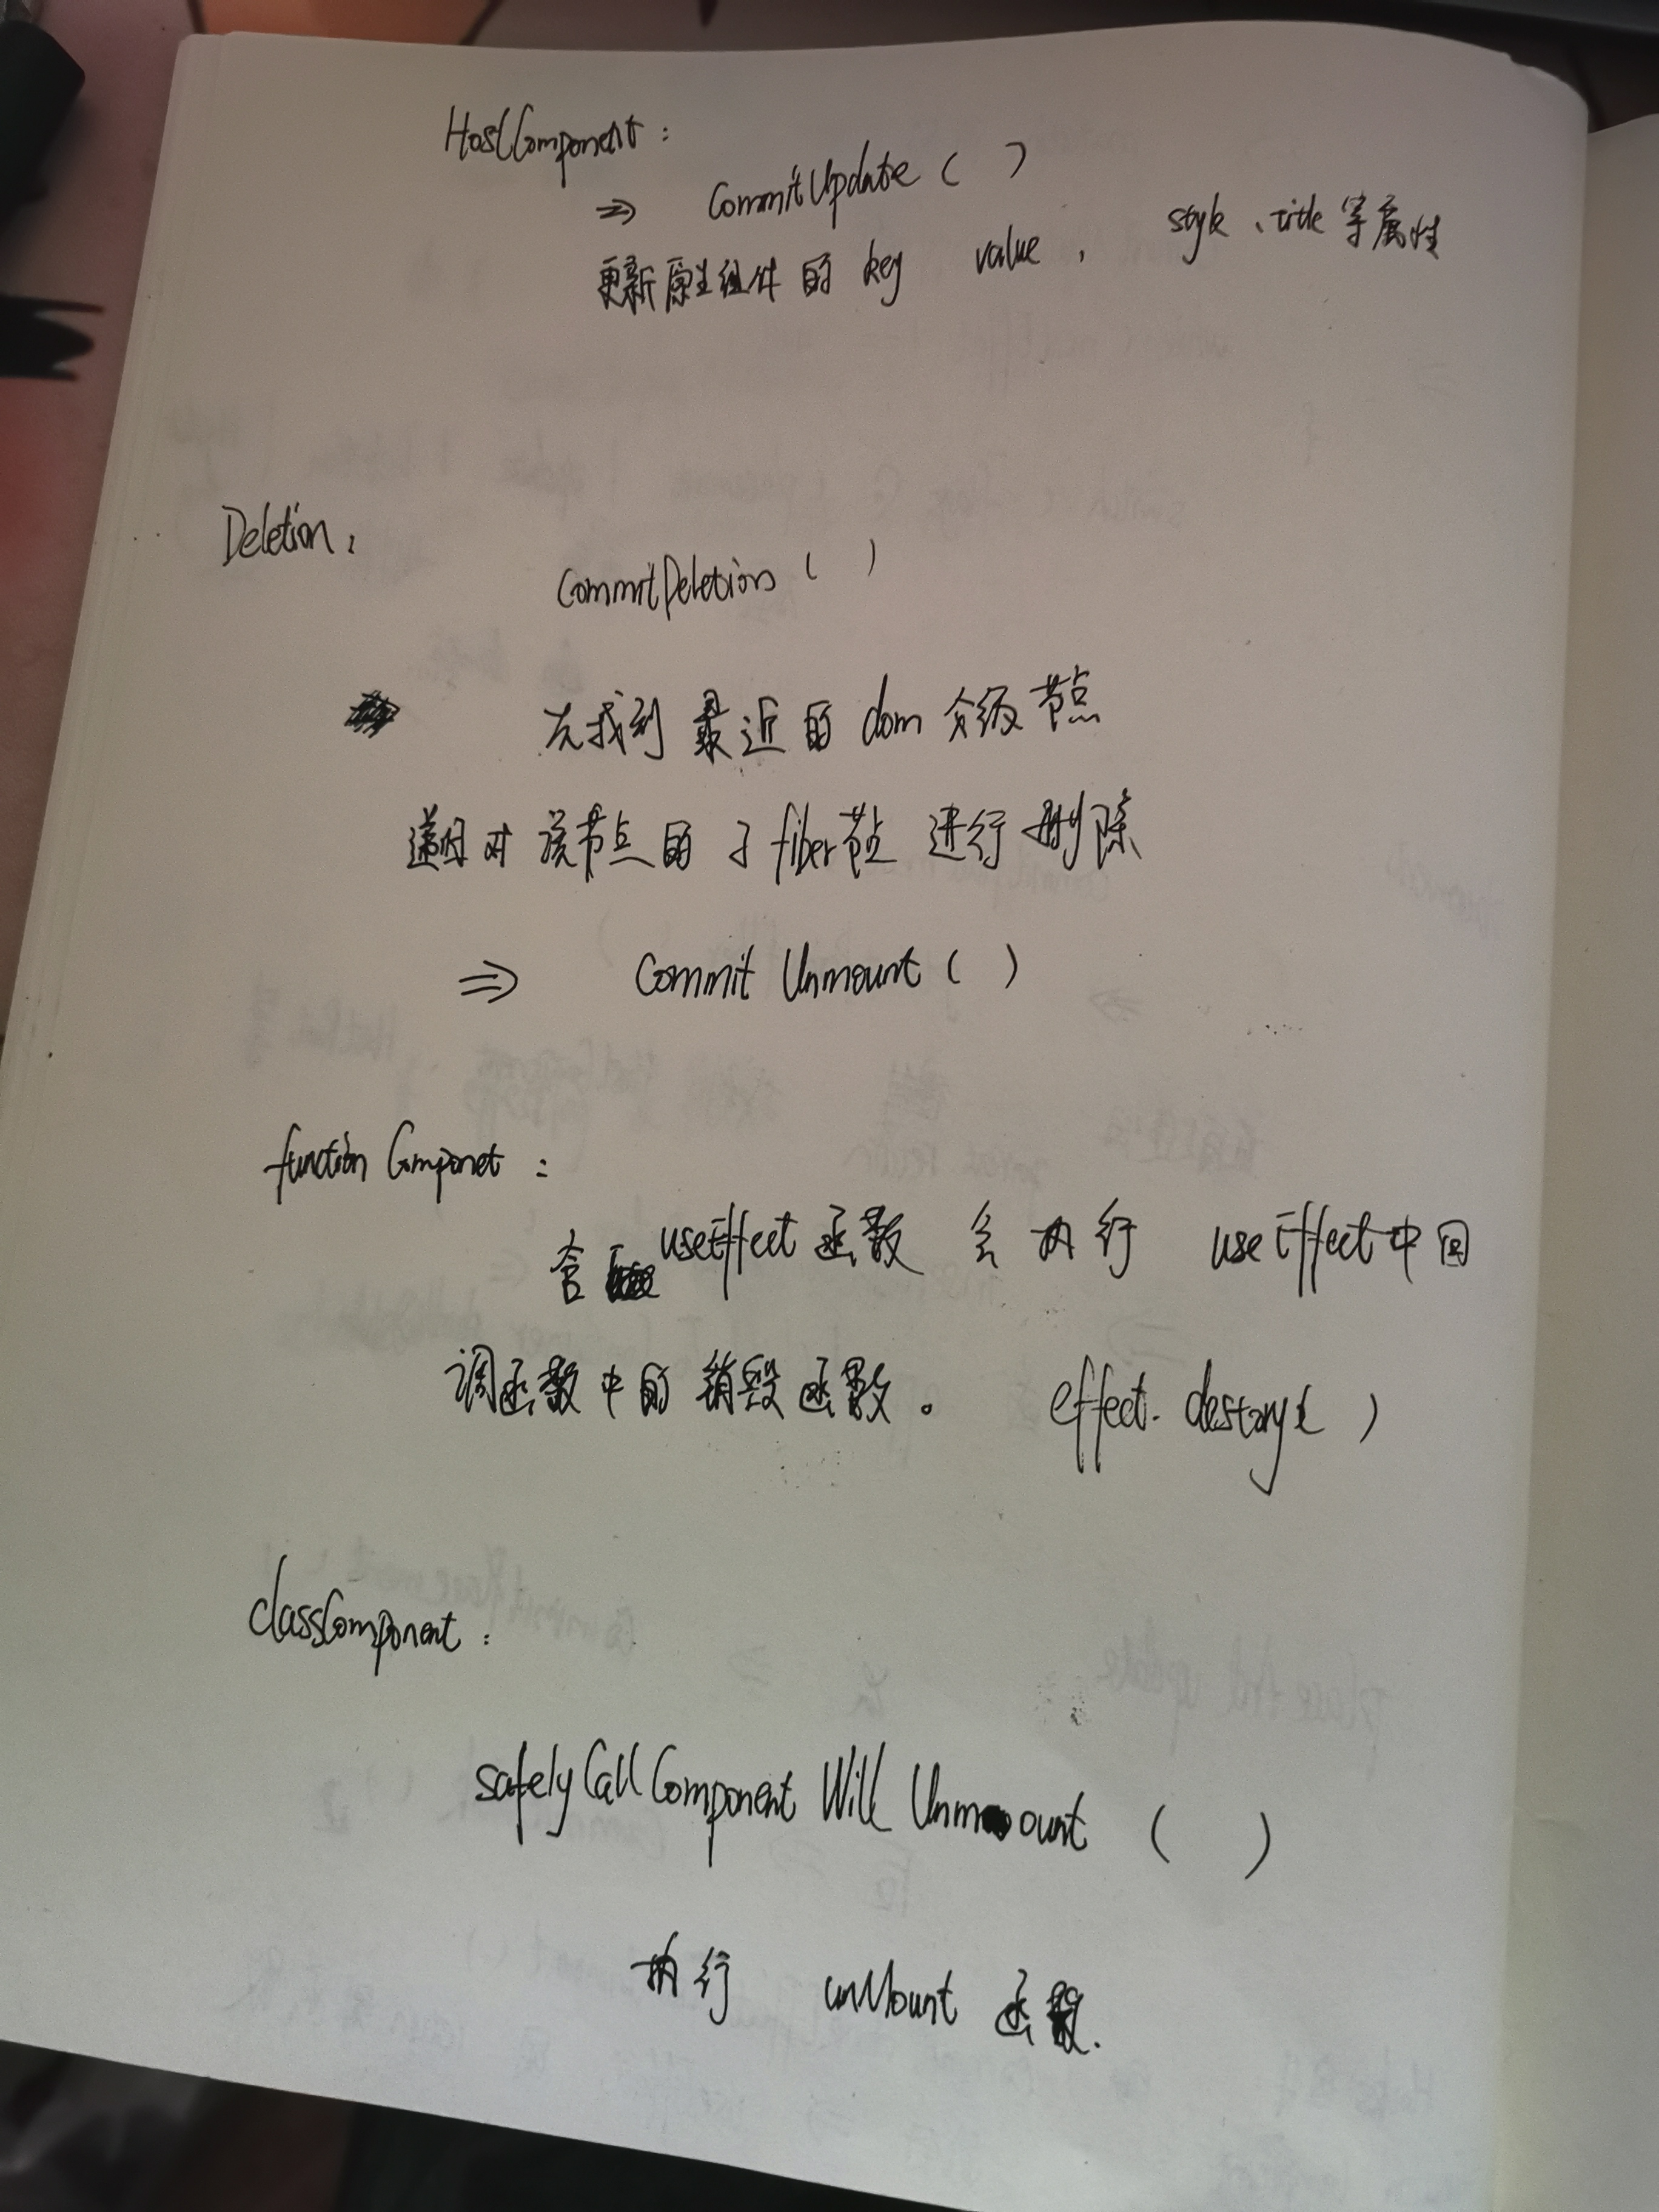 HostComponent:
⇒ CommitUpdate ( )
更新原生组件的 key value, style、title等属性
Deletion:
CommitDeletion ( )
先找到最近的 dom 父级节点
递归对该节点的子fiber节点进行删除
⇒ Commit Unmount ( )
function Componet:
含 useEffect 函数 会 执行 useEffect中回
调函数中的销毁函数。 effect. destory( )
classComponent:
safelyCallComponent Will Unmount ( )
执行 unMount 函数.